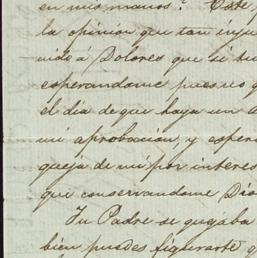 en mis manos? Este
la opinion que tan inque
nido á Dolores que si tu
esperandome pues no qu
el dia de que haya un a
mi aprobacion, y espero
queja de mi por interes
que conservandome Dios
Tu Padre se quejaba
bien puedes figurarte q